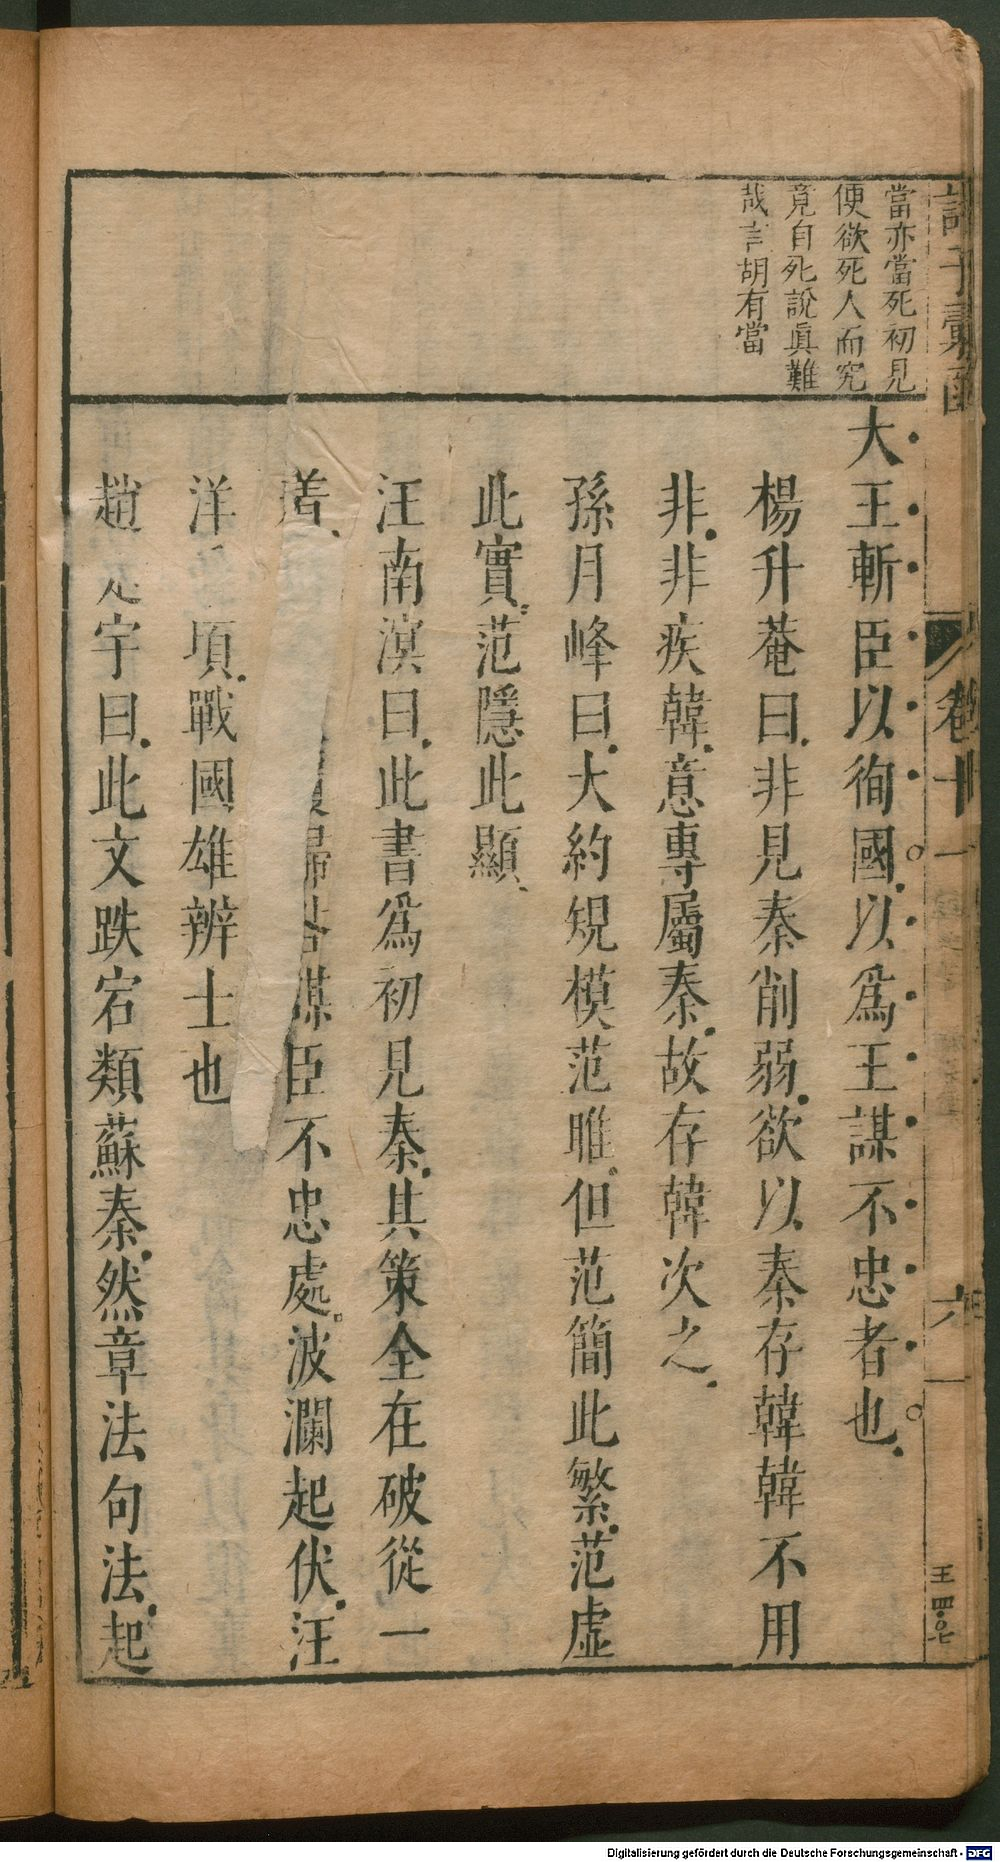 當亦當死初見
便欲死人而究
竟自死說眞難
哉言胡有當
大王斬臣以徇國以爲王謀不忠者也
楊升菴曰非見秦削弱欲以秦存韓韓不用
非非疾韓意專屬秦故存韓次之
孫月峰曰大約規模范睢但范簡此繁范虛
此實范隱此顯
汪南溟曰此書爲初見秦其策全在破從一
着 歸咎謀臣不忠處波瀾起伏汪
洋 頃戰國雄辨士也
趙 宇曰此文跌宕類蘇秦然章法句法起
子彙函
卷十一
六一
王四〇七
Digitalisierung gefördert durch die Deutsche Forschungsgemeinschaft - DFG